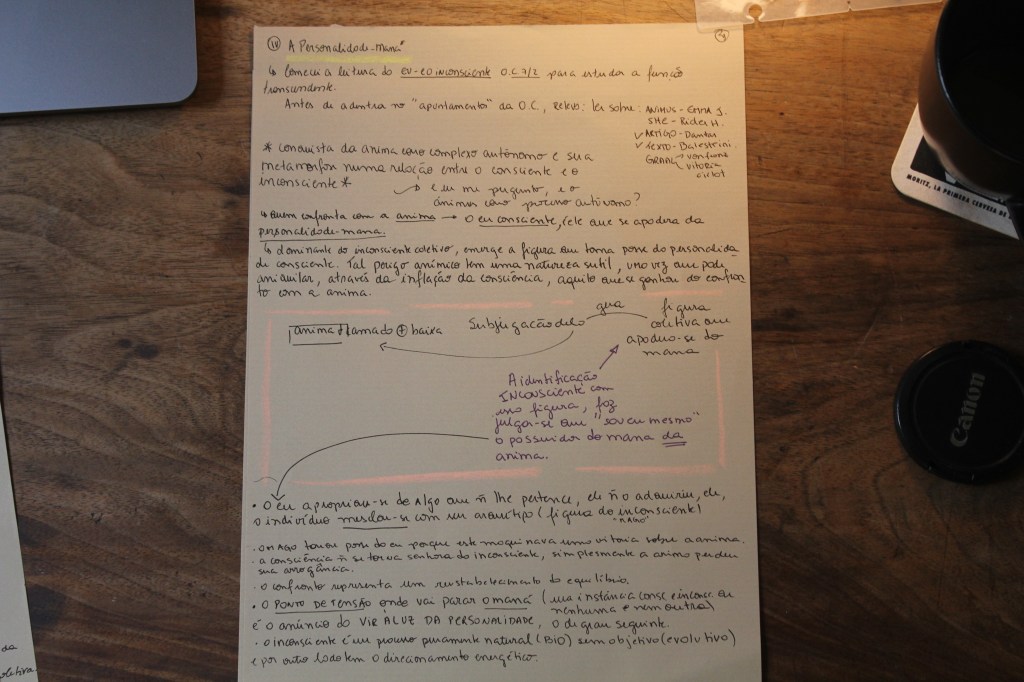 IV A Personalidade-maná
↳ Comecei a leitura do EU-e o inconsciente O.C 7/2 para estudar a função
transcendente.
Antes de adentrar no "apontamento" da O.C, relevo: ler sobre: ANIMUS - Emma J.
SHE - Rider H.
✓ ARTIGO - Dantas
✓ TEXTO - Balestrini
GRAAL → von franz
vitoria
cirlot
* conquista da anima como complexo autônomo e sua
metamorfose numa relação entre o consciente e o
inconsciente *
↳ e eu me pergunto, e o
animus como processo autônomo?
↳ quem confronta com a anima → o eu consciente, ele que se apodera da
personalidade-mana.
↳ dominante do inconsciente coletivo, emerge a figura que toma posse da personalida
de consciente. Tal perigo anímico tem uma natureza sutil, uma vez que pode
aniquilar, através da inflação da consciência, aquilo que se ganhou do confron
to com a anima.
anima + tomado ⊕ baixa
Subjugação dela
gera
figura
coletiva que
apodera-se do
mana
A identificação
INCONSCIENTE com
essa figura, faz
julgar-se que "sou eu mesmo"
o possuidor do mana da
anima.
• O eu apropriou-se de algo que ñ lhe pertence, ele ñ o adquiriu, ele,
o indivíduo mesclou-se com um arquétipo (figura do inconsciente)
"MAGO"
• O Mago tomou posse do eu porque este maquinava uma vitoria sobre a anima.
• a consciência ñ se torna senhora do inconsciente, simplesmente a anima perdeu
sua arrogância.
• o confronto representa um reestabelecimento do equilíbrio.
• O PONTO DE TENSÃO onde vai parar o maná (uma instância consc e inconsc ou
nenhuma e nem outra)
é o anúncio do VIR À LUZ DA PERSONALIDADE, o degrau seguinte.
• o inconsciente é um processo puramente natural (BIO) sem objetivo (evolutivo)
e por outro lado tem o direcionamento energético.
MORITZ, LA PRIMERA CERVEZA DE
Canon
da
coletiva.